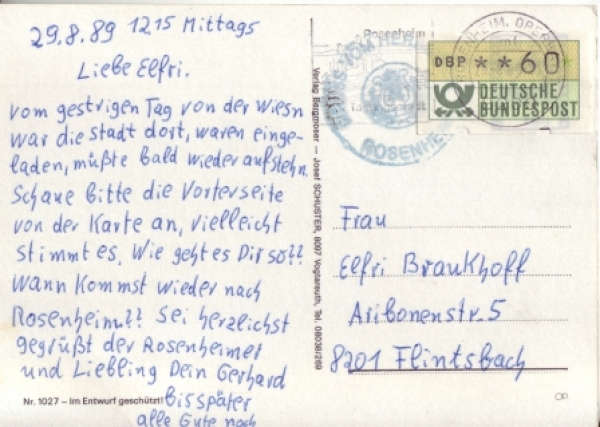 29.8.89 1215 Mittags
Liebe Elfri.
vom gestrigen Tag von der Wiesn
war die stadt dort, waren einge-
laden, müßte bald wieder aufstehn.
Schaue bitte die Vorterseite
von der Karte an, vielleicht
stimmt es, Wie geht es Dir so??
Wann Kommst wieder nach
Rosenheim?? Sei herzlichst
gegrüßt der Rosenheimer
und Liebling Dein Gerhard
bis später
alle Gute noch
Nr. 1027 – Im Entwurf geschützt!
Verlag Bergmoser — Josef SCHUSTER, 8097 Vogtareuth, Tel. 08038/269
Rosenheim
ROSENHEIM, OBER
ROSENHEIM
DBP **60
DEUTSCHE
BUNDESPOST
Frau
Elfri Braukhoff
Aribonenstr. 5
8201 Flintsbach